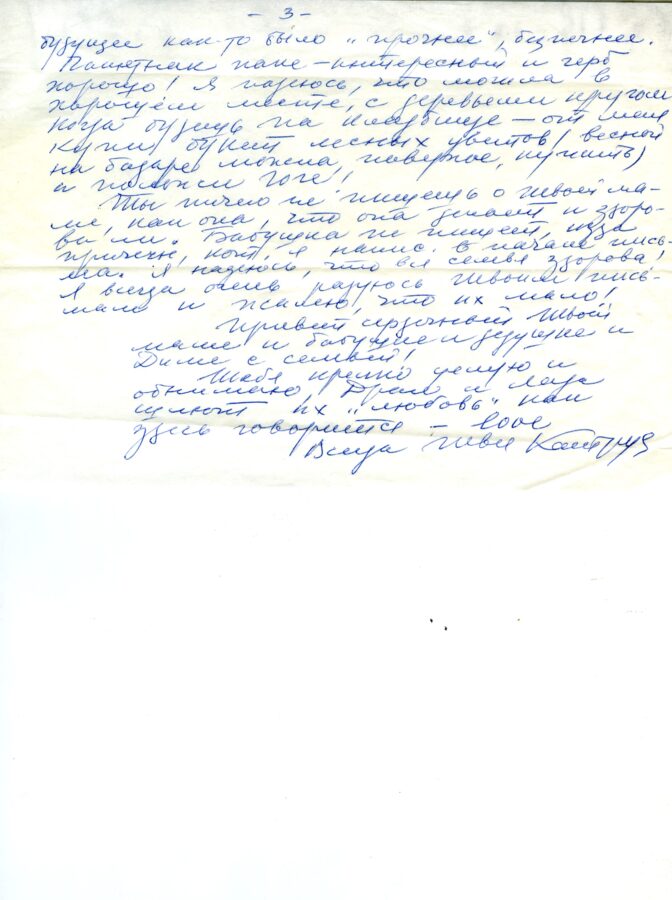 - 3 -
будущее как-то было "прочнее", безпечнее.
Памятник папе - интересный и герб
хорошо! Я надеюсь, что могила в
хорошем месте, с деревьями кругом
Когда будешь на кладбище - от меня
купи букет лесных цветов (весной
на базаре можна, наверное, купить)
и положи Гоге!
Ты ничего не пишешь о твоей ма-
ме, как она, что она делает и здоро-
ва ли. Бабушка не пишет, из-за
причены, кот. я напис. в начале пись-
ма. Я надеюсь, что вся семья здорова!
Я всегда очень радуюсь твоим пись-
мам и жалею, что их мало!
Привет сердечный твоей
маме и бабушке и дедушке и
Диме с семьей!
Тебя крепко целую и
обнимаю,
шлют их "любовь" как
здесь говорится - love
Всегда твоя